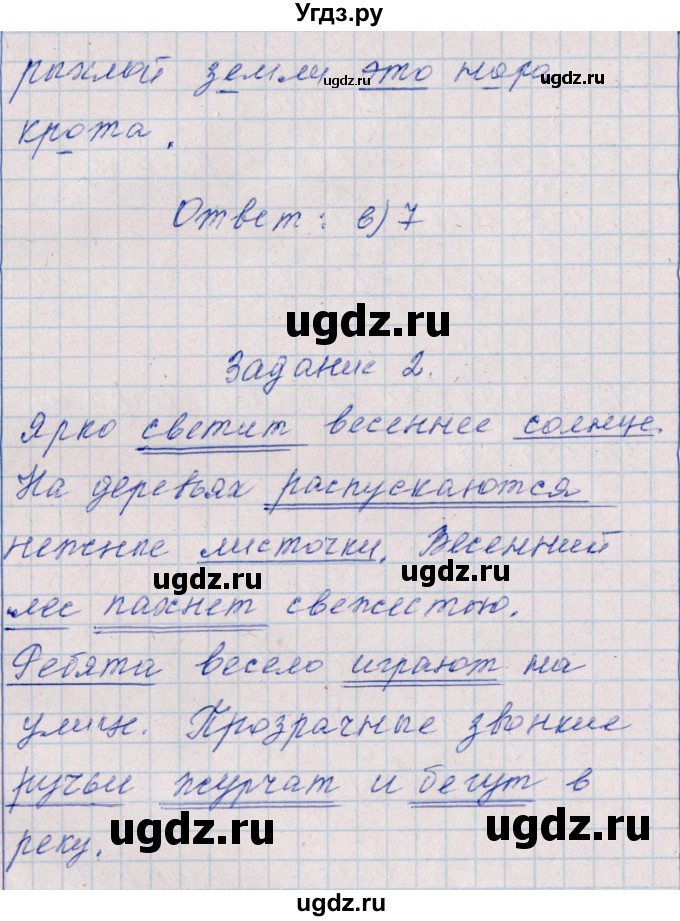 Угдз.ру
рыхлой земли это нора
ugdz.ru ugdz.ru
крота.
ugdz.ru
Ответ: в) 7
ugdz.ru
Задание 2.
Ярко светит весеннее солнце.
На деревьях распускаются
ugdz.ru
нежные листочки. Весенний
ugdz.ru
лес пахнет свежестью.
ugdz.ru
Ребята весело играют на
улице. Прозрачные звонкие
ручьи журчат и бегут в
ugdz.ru ugdz.ru
реку.
ugdz.ru